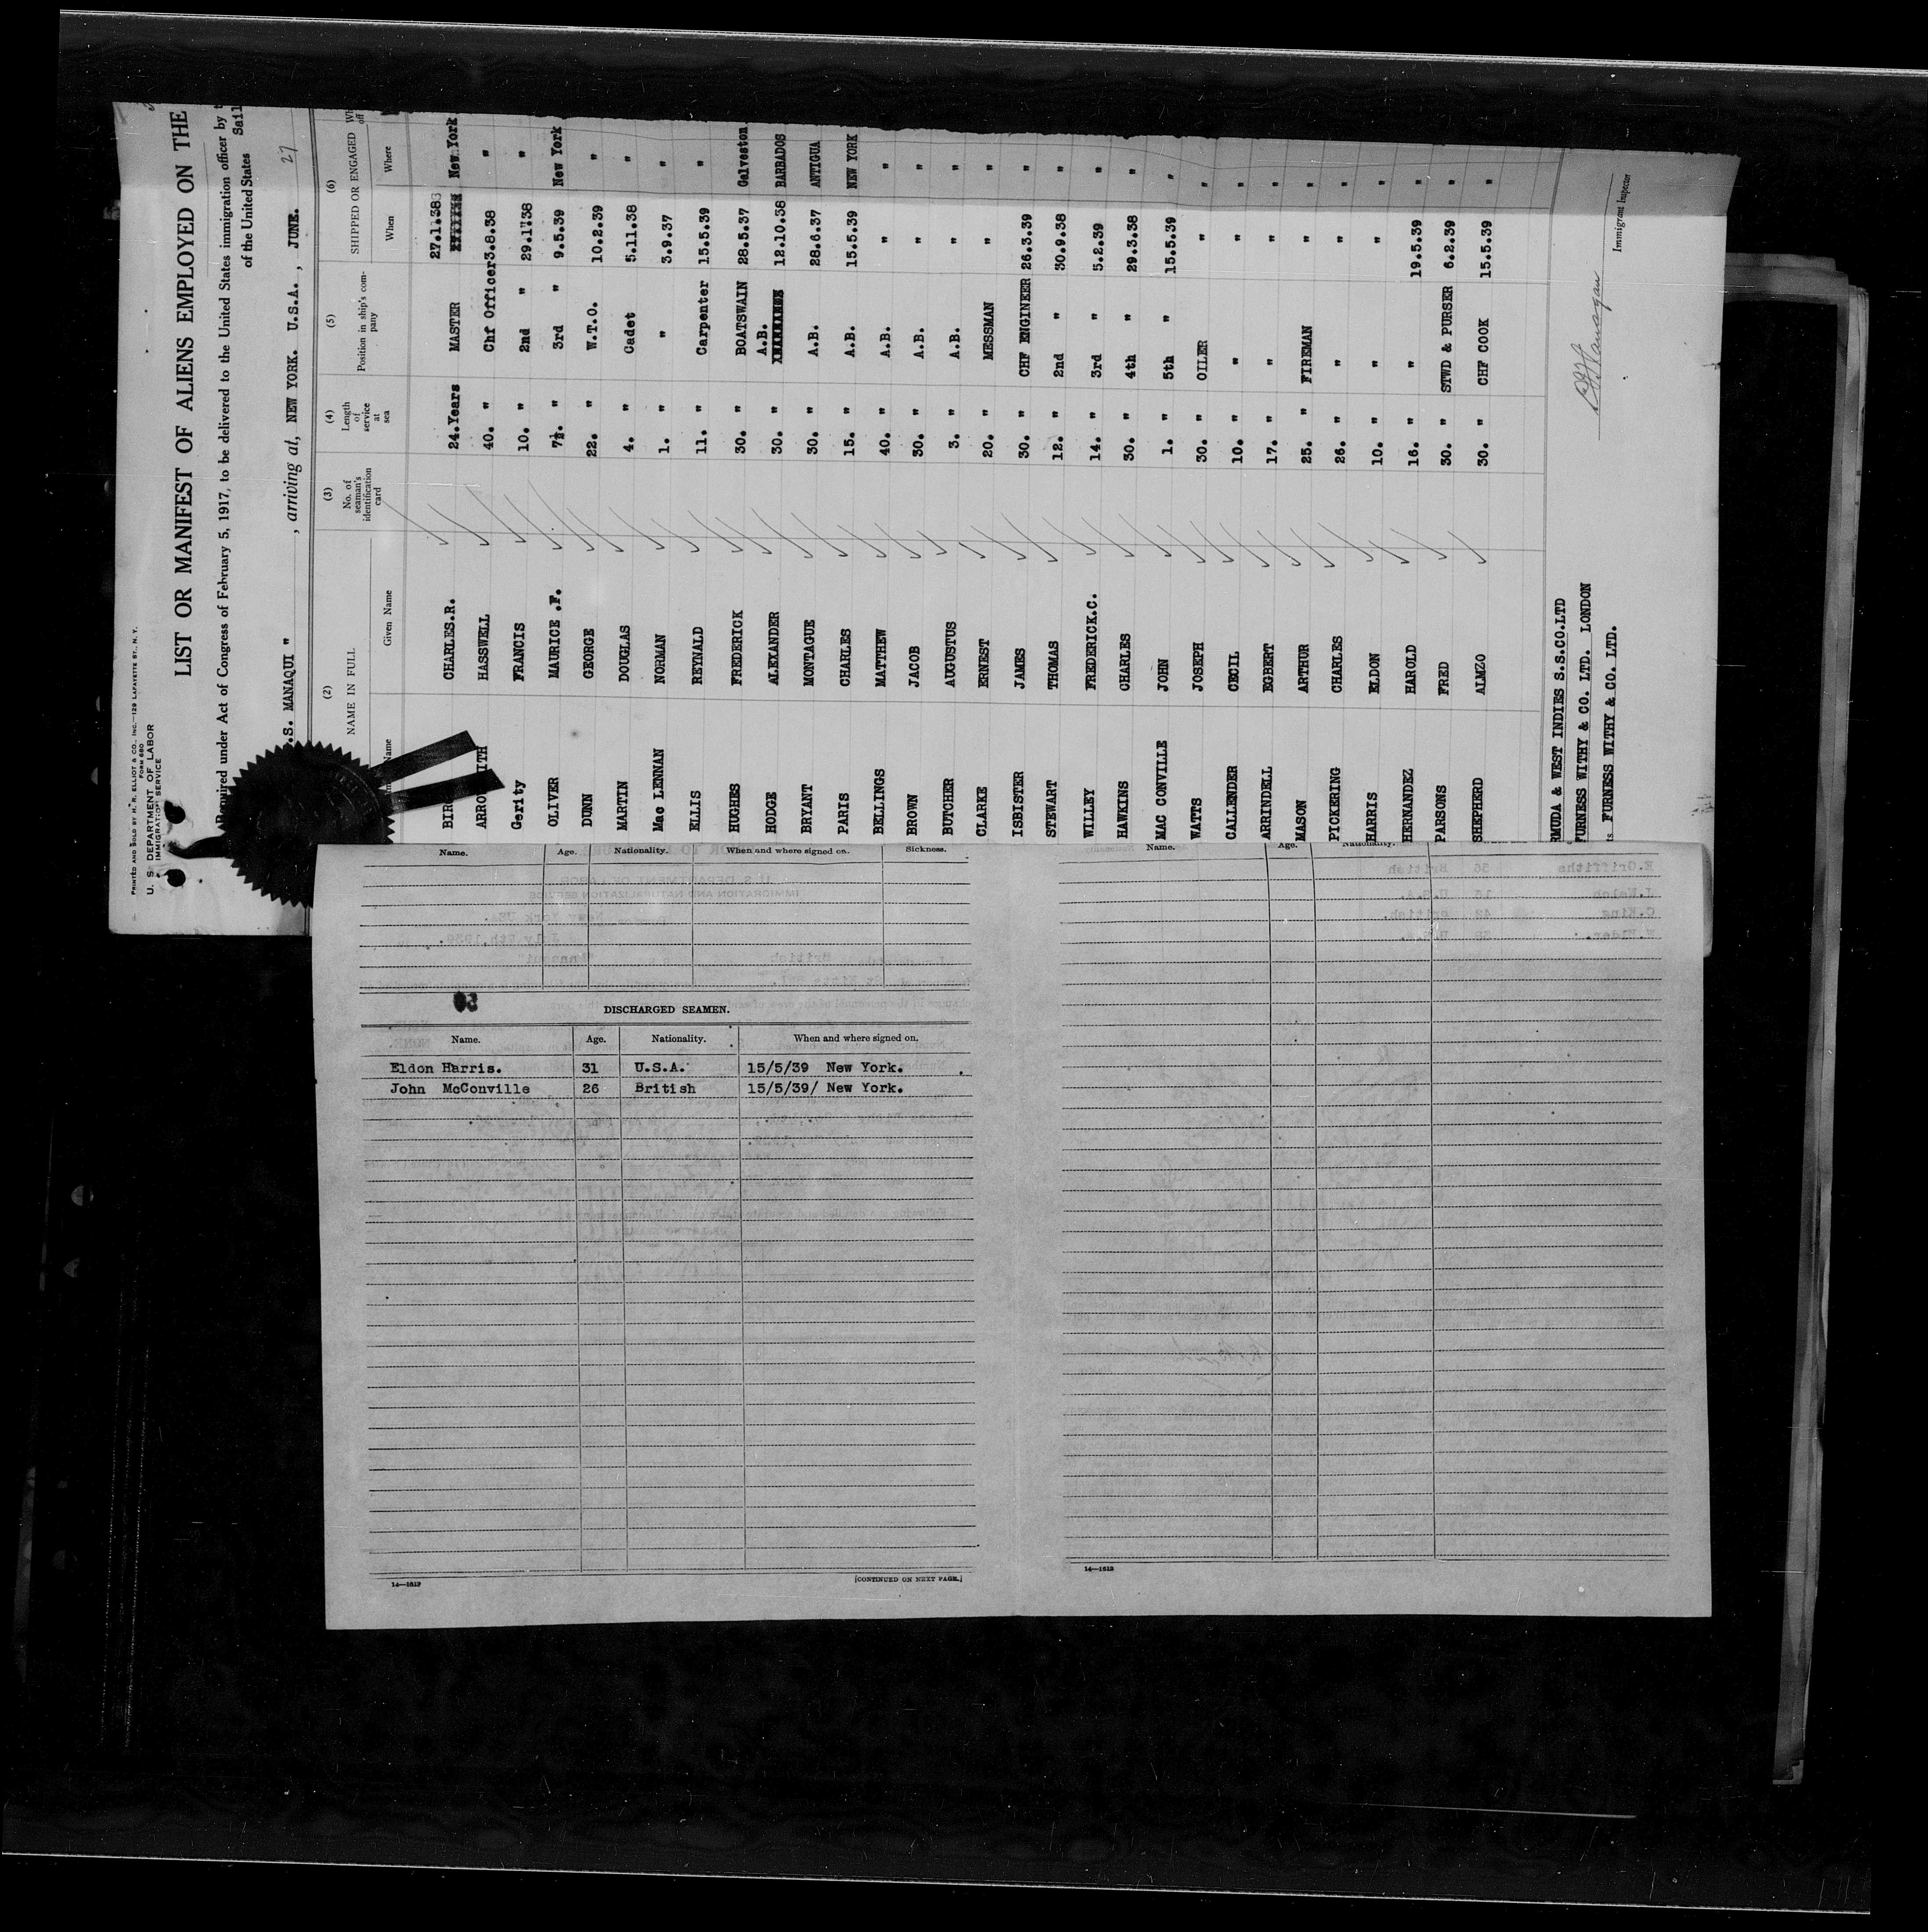 PRINTED AND SOLD BY H. R. ELLIOT & CO., INC.—129 LAFAYETTE ST., N. Y.
FORM 680
U. S. DEPARTMENT OF LABOR
IMMIGRATION SERVICE
LIST OR MANIFEST OF ALIENS EMPLOYED ON THE
Required under Act of Congress of February 5, 1917, to be delivered to the United States immigration officer by
of the United States Sail
S.S. MANAQUI " , arriving at, NEW YORK. U.S.A. , JUNE. 27
(2) (3) (4) (5) (6)
NAME IN FULL No. of seaman's identification card Length of service at sea Position in ship's company SHIPPED OR ENGAGED
Name Given Name When Where
27.1.38
CHARLES.R. 24.Years MASTER New York
HASSWELL 40. " Chf Officer 3.8.38 "
Gerity FRANCIS 10. " 2nd " 29.1'38 "
OLIVER MAURICE .F. 7½. " 3rd " 9.5.39 New York
DUNN GEORGE 22. " W.T.O. 10.2.39 "
MARTIN DOUGLAS 4. " Cadet 5.11.38 "
Mac LENNAN NORMAN 1. " " 3.9.37 "
ELLIS REYNALD 11. " Carpenter 15.5.39 "
HUGHES FREDERICK 30. " BOATSWAIN 28.5.37 Galveston
HODGE ALEXANDER 30. " A.B. 12.10.38 BARBADOS
BRYANT MONTAGUE 30. " A.B. 28.6.37 ANTIGUA
PARIS CHARLES 15. " A.B. 15.5.39 NEW YORK
BELLINGS MATTHEW 40. " A.B. " "
BROWN JACOB 30. " A.B. " "
BUTCHER AUGUSTUS 3. " A.B. " "
CLARKE ERNEST 20. " MESSMAN " "
ISBISTER JAMES 30. " CHF ENGINEER 26.3.39 "
STEWART THOMAS 12. " 2nd " 30.9.38 "
WILLEY FREDERICK.C. 14. " 3rd " 5.2.39 "
HAWKINS CHARLES 30. " 4th " 29.3.38 "
MAC CONVILLE JOHN 1. " 5th " 15.5.39 "
WATTS JOSEPH 30. " OILER " "
CALLENDER CECIL 10. " " " "
ARRINDELL EGBERT 17. " " " "
MASON ARTHUR 25. " FIREMAN " "
PICKERING CHARLES 26. " " " "
HARRIS ELDON 10. " " " "
HERNANDEZ HAROLD 16. " " 19.5.39 "
PARSONS FRED 30. " STWD & PURSER 6.2.39 "
SHEPHERD ALMZO 30. " CHF COOK 15.5.39 "
RMUDA & WEST INDIES S.S.CO.LTD
FURNESS WITHY & CO. LTD. LONDON
ts FURNESS WITHY & CO. LTD.
Immigrant Inspector
Name. Age. Nationality. When and where signed on. Sickness.
DISCHARGED SEAMEN.
Name. Age. Nationality. When and where signed on.
Eldon Harris. 31 U.S.A. 15/5/39 New York.
John McConville 26 British 15/5/39/ New York.
14—1613 [CONTINUED ON NEXT PAGE.]
Name. Age. Nationality.
14—1613